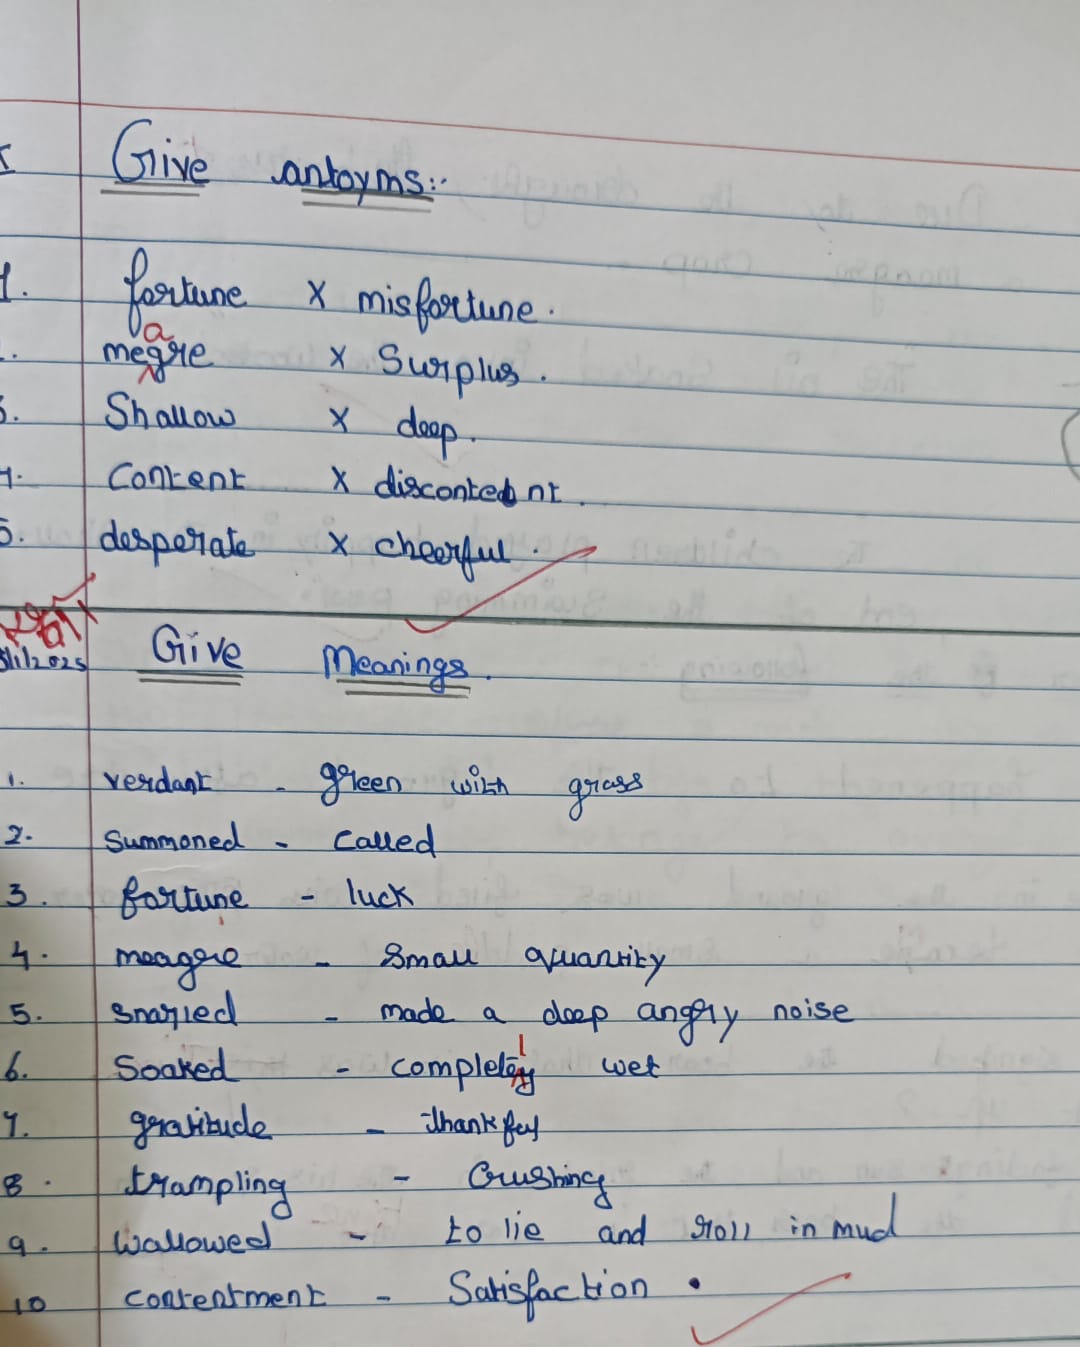 Give antoyms:-
1. fortune X misfortune.
megre X Surplus.
a
3. Shallow X deep.
4. Content X discontednt.
5. desperate X cheerful.
1/2025 Give Meanings.
1. verdant - green with grass
2. Summoned - Called
3. fortune - luck
4. meagre - Small quantity
5. Snarled - made a deep angry noise
6. Soaked - completey wet
l
7. gratitude - thankful
8. trampling - Crushing
9. wallowed - to lie and roll in mud
10 contentment - Satisfaction.